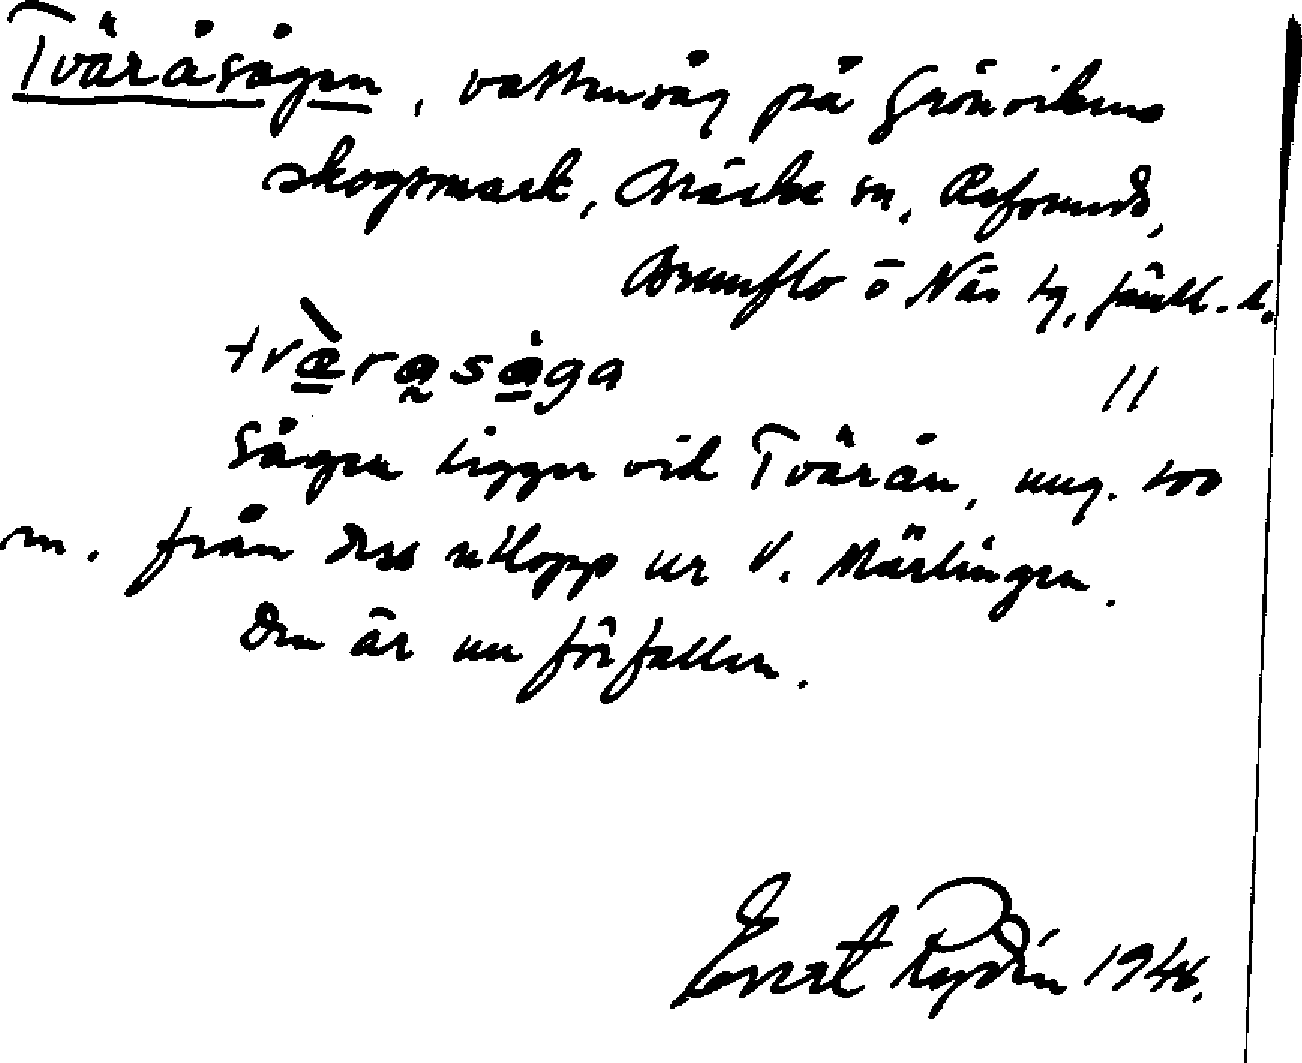 Tväråsågen, vattensåg på Grönvikens
skogsmark, Bräcke sn, Refsunds,
Brunflo o Näs tg, Jämtl. l.
tvæ̀rasåga //
Sågen ligger vid Tvärån, ung. 100
m. från dess utlopp ur V. Märlingen.
Den är nu förfallen.
Evert Rydin 194